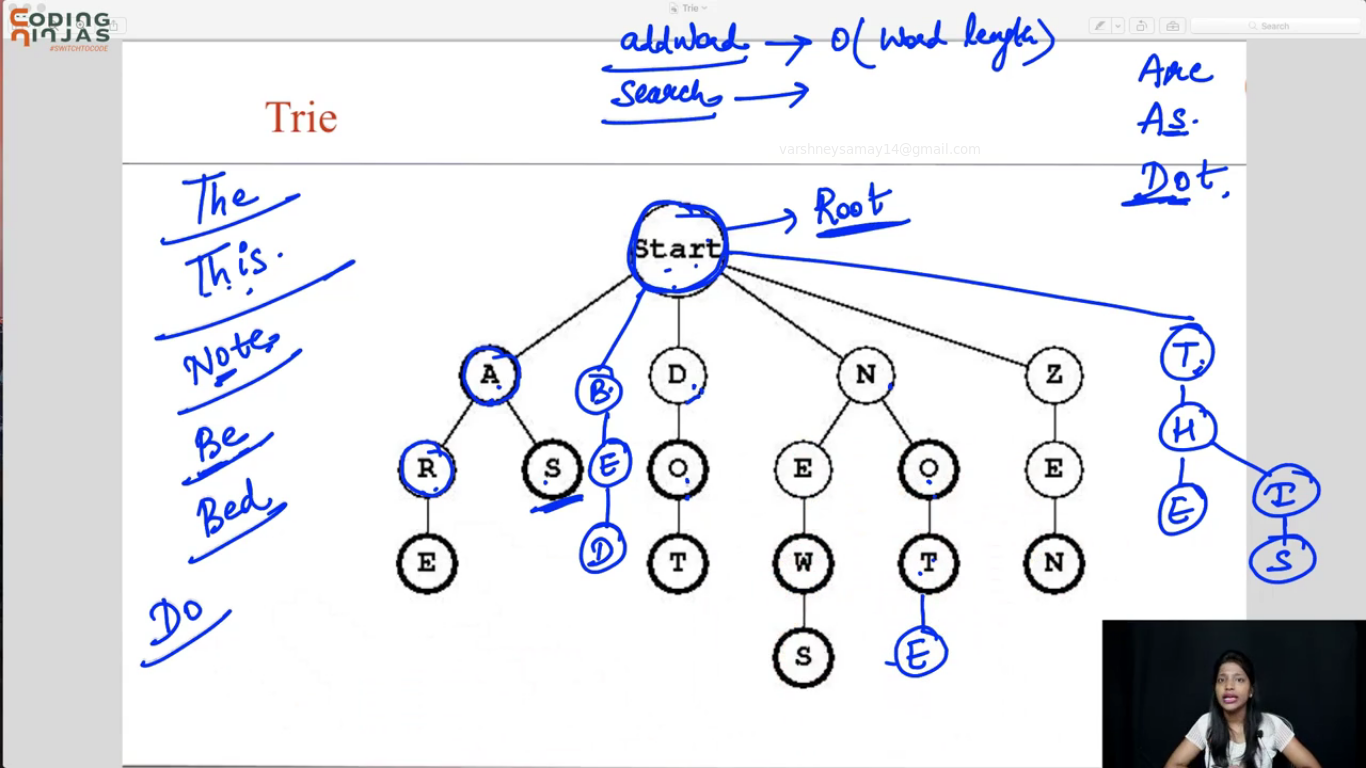 Trie
CODING
NINJAS
#SWITCHTOCODE
Search
addword → O(Word length)
search →
Are
As.
Dot.
Trie
varshneysamay14@gmail.com
The
This.
Note
Be
Bed
Do
Start → Root
A B D N Z T
R S E O E O E H
E D T W T N E I
S E S